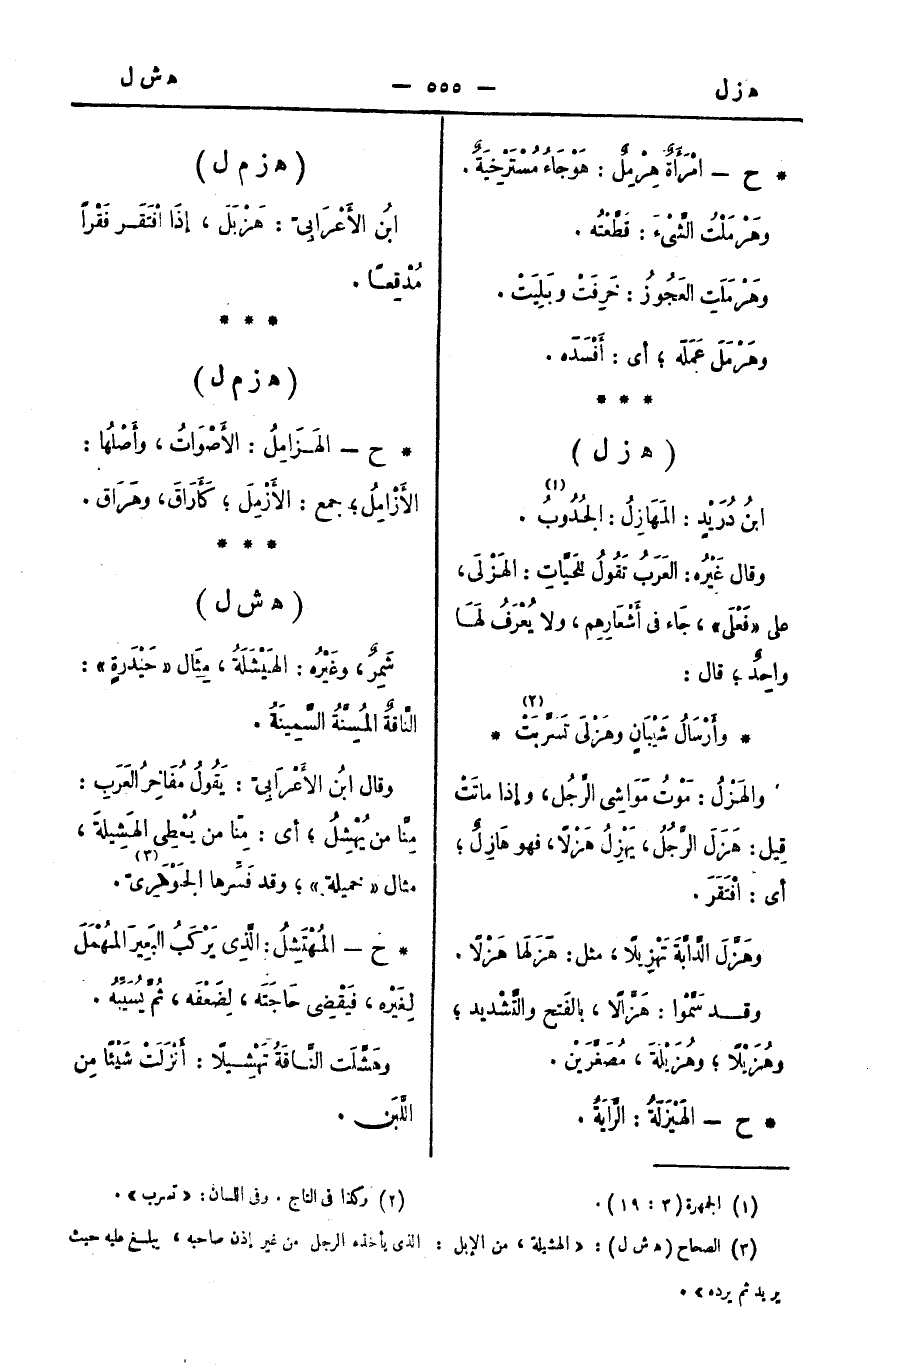 ه ز ل — ٥٥٥ — ه ش ل
* ح — امْرَأَةٌ هِرْمِلٌ : هَوْجَاءُ مُسْتَرْخِيَةٌ .
وَهَرْمَلْتُ الشَّيْءَ : قَطَّعْتُه .
وهَرْمَلَتِ العَجُوزُ : خَرِفَتْ وبَلِيَتْ .
وهَرْمَلَ عَمَلَه ؛ أى : أَفْسَدَه .
* * *
( ه ز ل )
ابنُ دُرَيْدٍ : المَهَازِلُ : الجُدُوبُ (١) .
وقال غَيْرُه : العَرَبُ تَقُولُ للحَيَّاتِ : الهَزْلَى ،
على «فَعْلَى» ، جَاء فى أَشْعَارِهِم ، ولا يُعْرَفُ لَهَـا
واحِدٌ ؛ قال :
* وأَرْسَالُ شَيْبَانٍ وهَزْلَى تَسَرَّبَتْ (٢) *
والهَزْلُ : مَوْتُ مَوَاشِى الرَّجُل ، وإذا ماتَتْ
قيل : هَزَلَ الرَّجُلُ ، يَهْزِلُ هَزْلًا ، فهو هَازِلٌ ؛
أى : افْتَقَرَ .
وهَزَّلَ الدَّابَّةَ تَهْزِيلًا ، مثل : هَزَلَها هَزْلًا .
وقــد سَمَّوْا : هَزَّالًا ، بالفَتح والتَّشْديد ؛
وهُزَيْلًا ؛ وهُزَيْلَةَ ، مُصَغَّرَيْن .
* ح — الهَيْزَلَةُ : الرَّايَةُ .
( ه ز م ل )
ابنُ الأَعْرَابِىّ : هَزْبَلَ ، إذَا افْتَقَـر فَقْرًا
مُدْقِعًـا .
* * *
( ه ز م ل )
* ح — الهَـزَامِلُ : الأَصْوَاتُ ، وأَصْلُها :
الأَزَامِلُ ؛ جمع : الأَزْمِلَ ؛ كَأَرَاقَ ، وهَرَاق .
* * *
( ه ش ل )
شَمِرٌ ، وغَيْرُه : الهَيْشَلَةُ ، مِثَال « حَيْدَرَةٍ » :
النَّاقَةُ المُسِنَّةُ السَّمِينَةُ .
وقال ابنُ الأَعْرَابِىّ : يَقُولُ مُفَاخِرُ العَرَبِ :
مِنَّا من يُهْشِلُ ؛ أى : مِنّا من يُعْطِى الهَشِيلةَ ،
مثال « خميلة » ؛ وقد فَسَّرها الجَوْهَرِىّ (٣) .
* ح — المُهْتَشِلُ : الَّذِى يَرْكَبُ البَعِيرَ المُهْمَلَ
لِغَيْرِه ، فَيَقْضِى حَاجَتَه ، لِضَعْفَه ، ثُمَّ يُسَيِّبُه .
وهَشَّلَت النَّـاقَةُ تَهْشِـيلًا : أَنْزَلَتْ شَيْئًا مِن
اللَّبَن .
(١) الجمهرة (٣ : ١٩) . (٢) وكذا فى التاج . وفى اللسان : « تسرب » .
(٣) الصحاح (ه ش ل) : « الهشيلة ، من الإبل : الذى يأخذه الرجل من غير إذن صاحبه ، يبلـغ عليه حيث
يريد ثم يرده » .